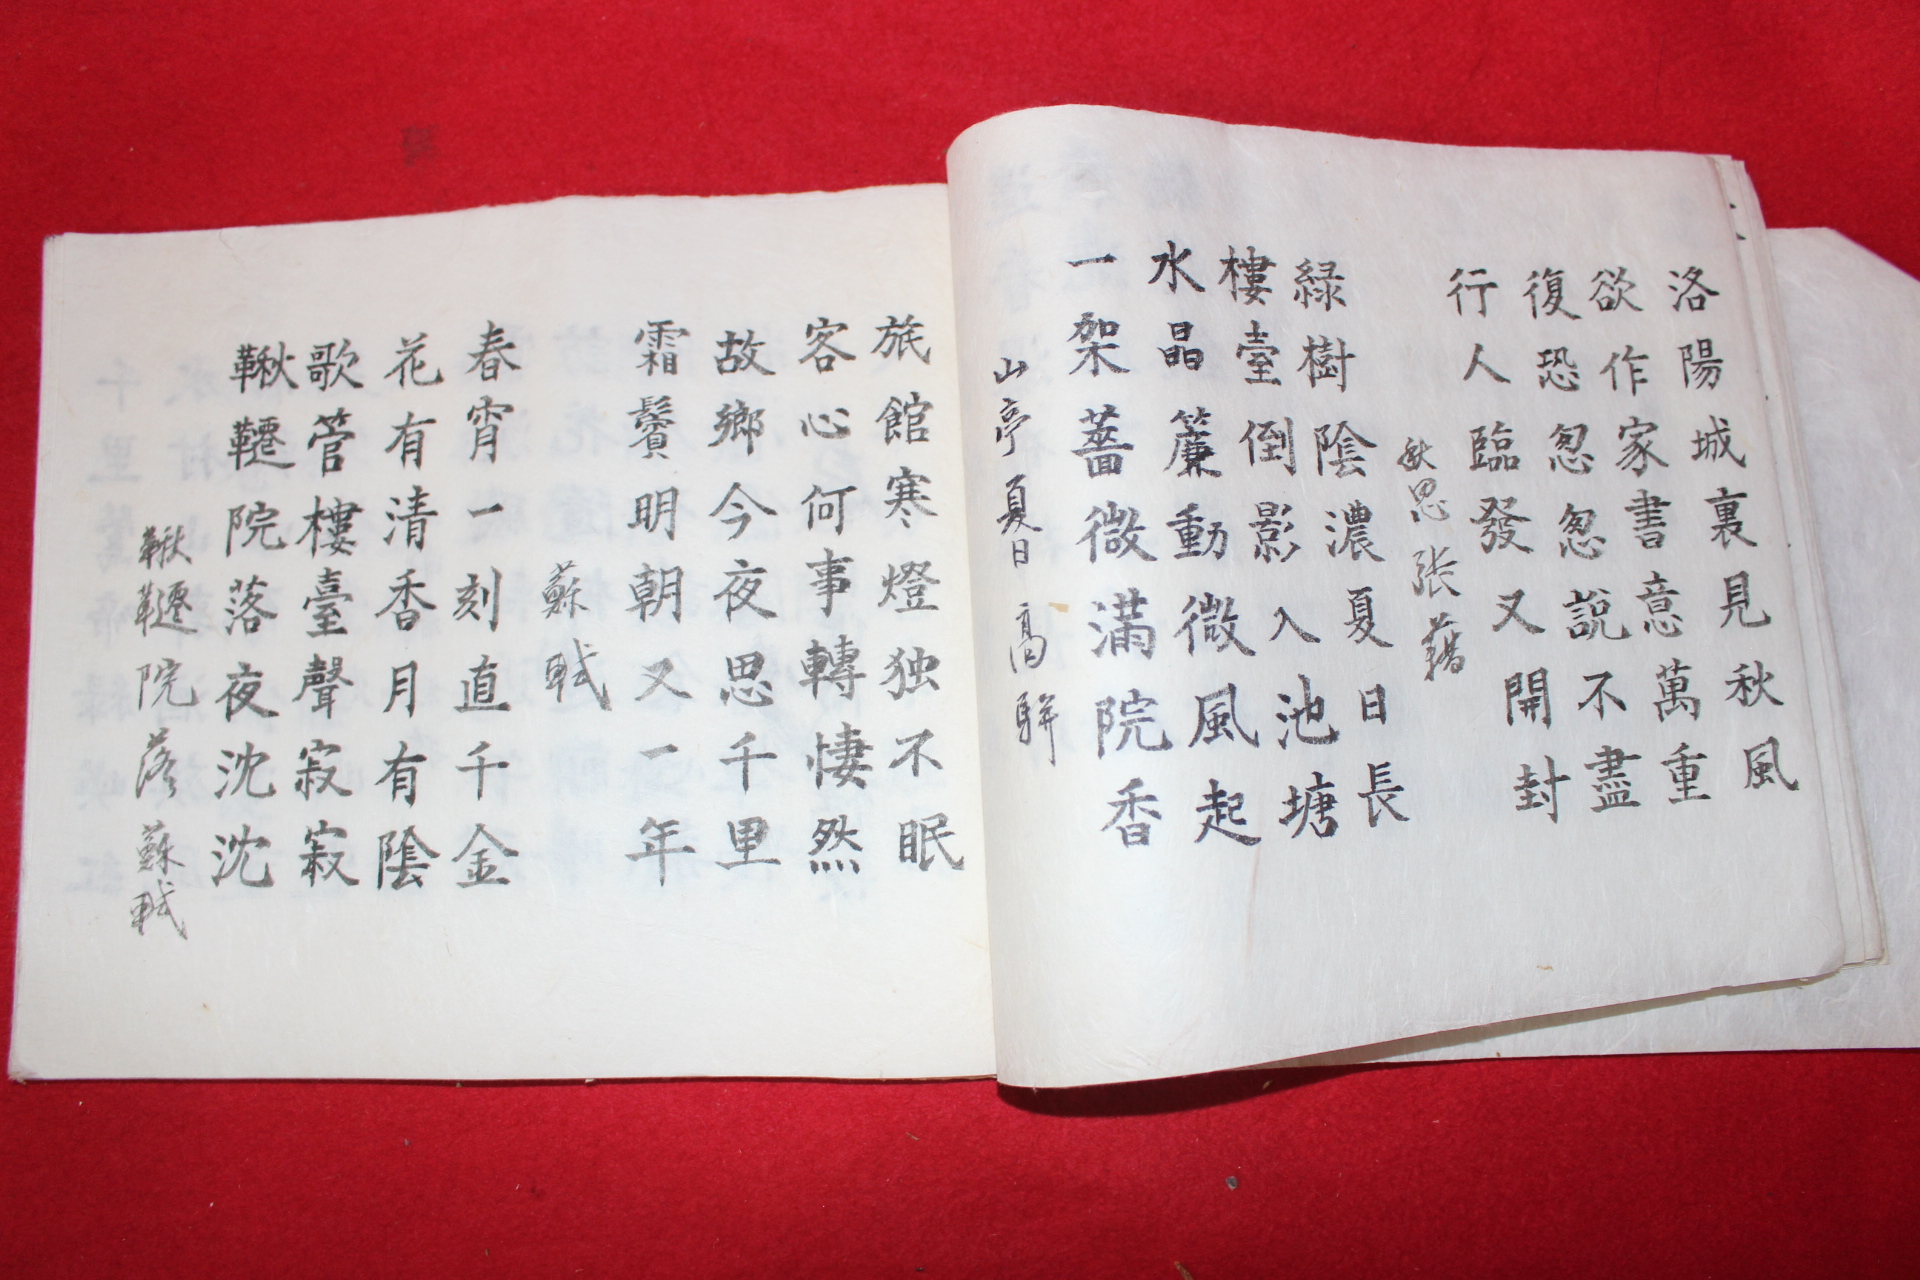 洛陽城裏見秋風
欲作家書意萬重
復恐怱怱説不盡
行人臨發又開封
秋思 張籍
緑樹陰濃夏日長
樓臺倒影入池塘
水晶簾動微風起
一架薔薇滿院香
山亭夏日 高駢
旅館寒燈独不眠
客心何事轉悽然
故鄉今夜思千里
霜鬢明朝又一年
蘇軾
春宵一刻直千金
花有清香月有陰
歌管樓臺聲寂寂
鞦韆院落夜沈沈
鞦韆院落 蘇軾